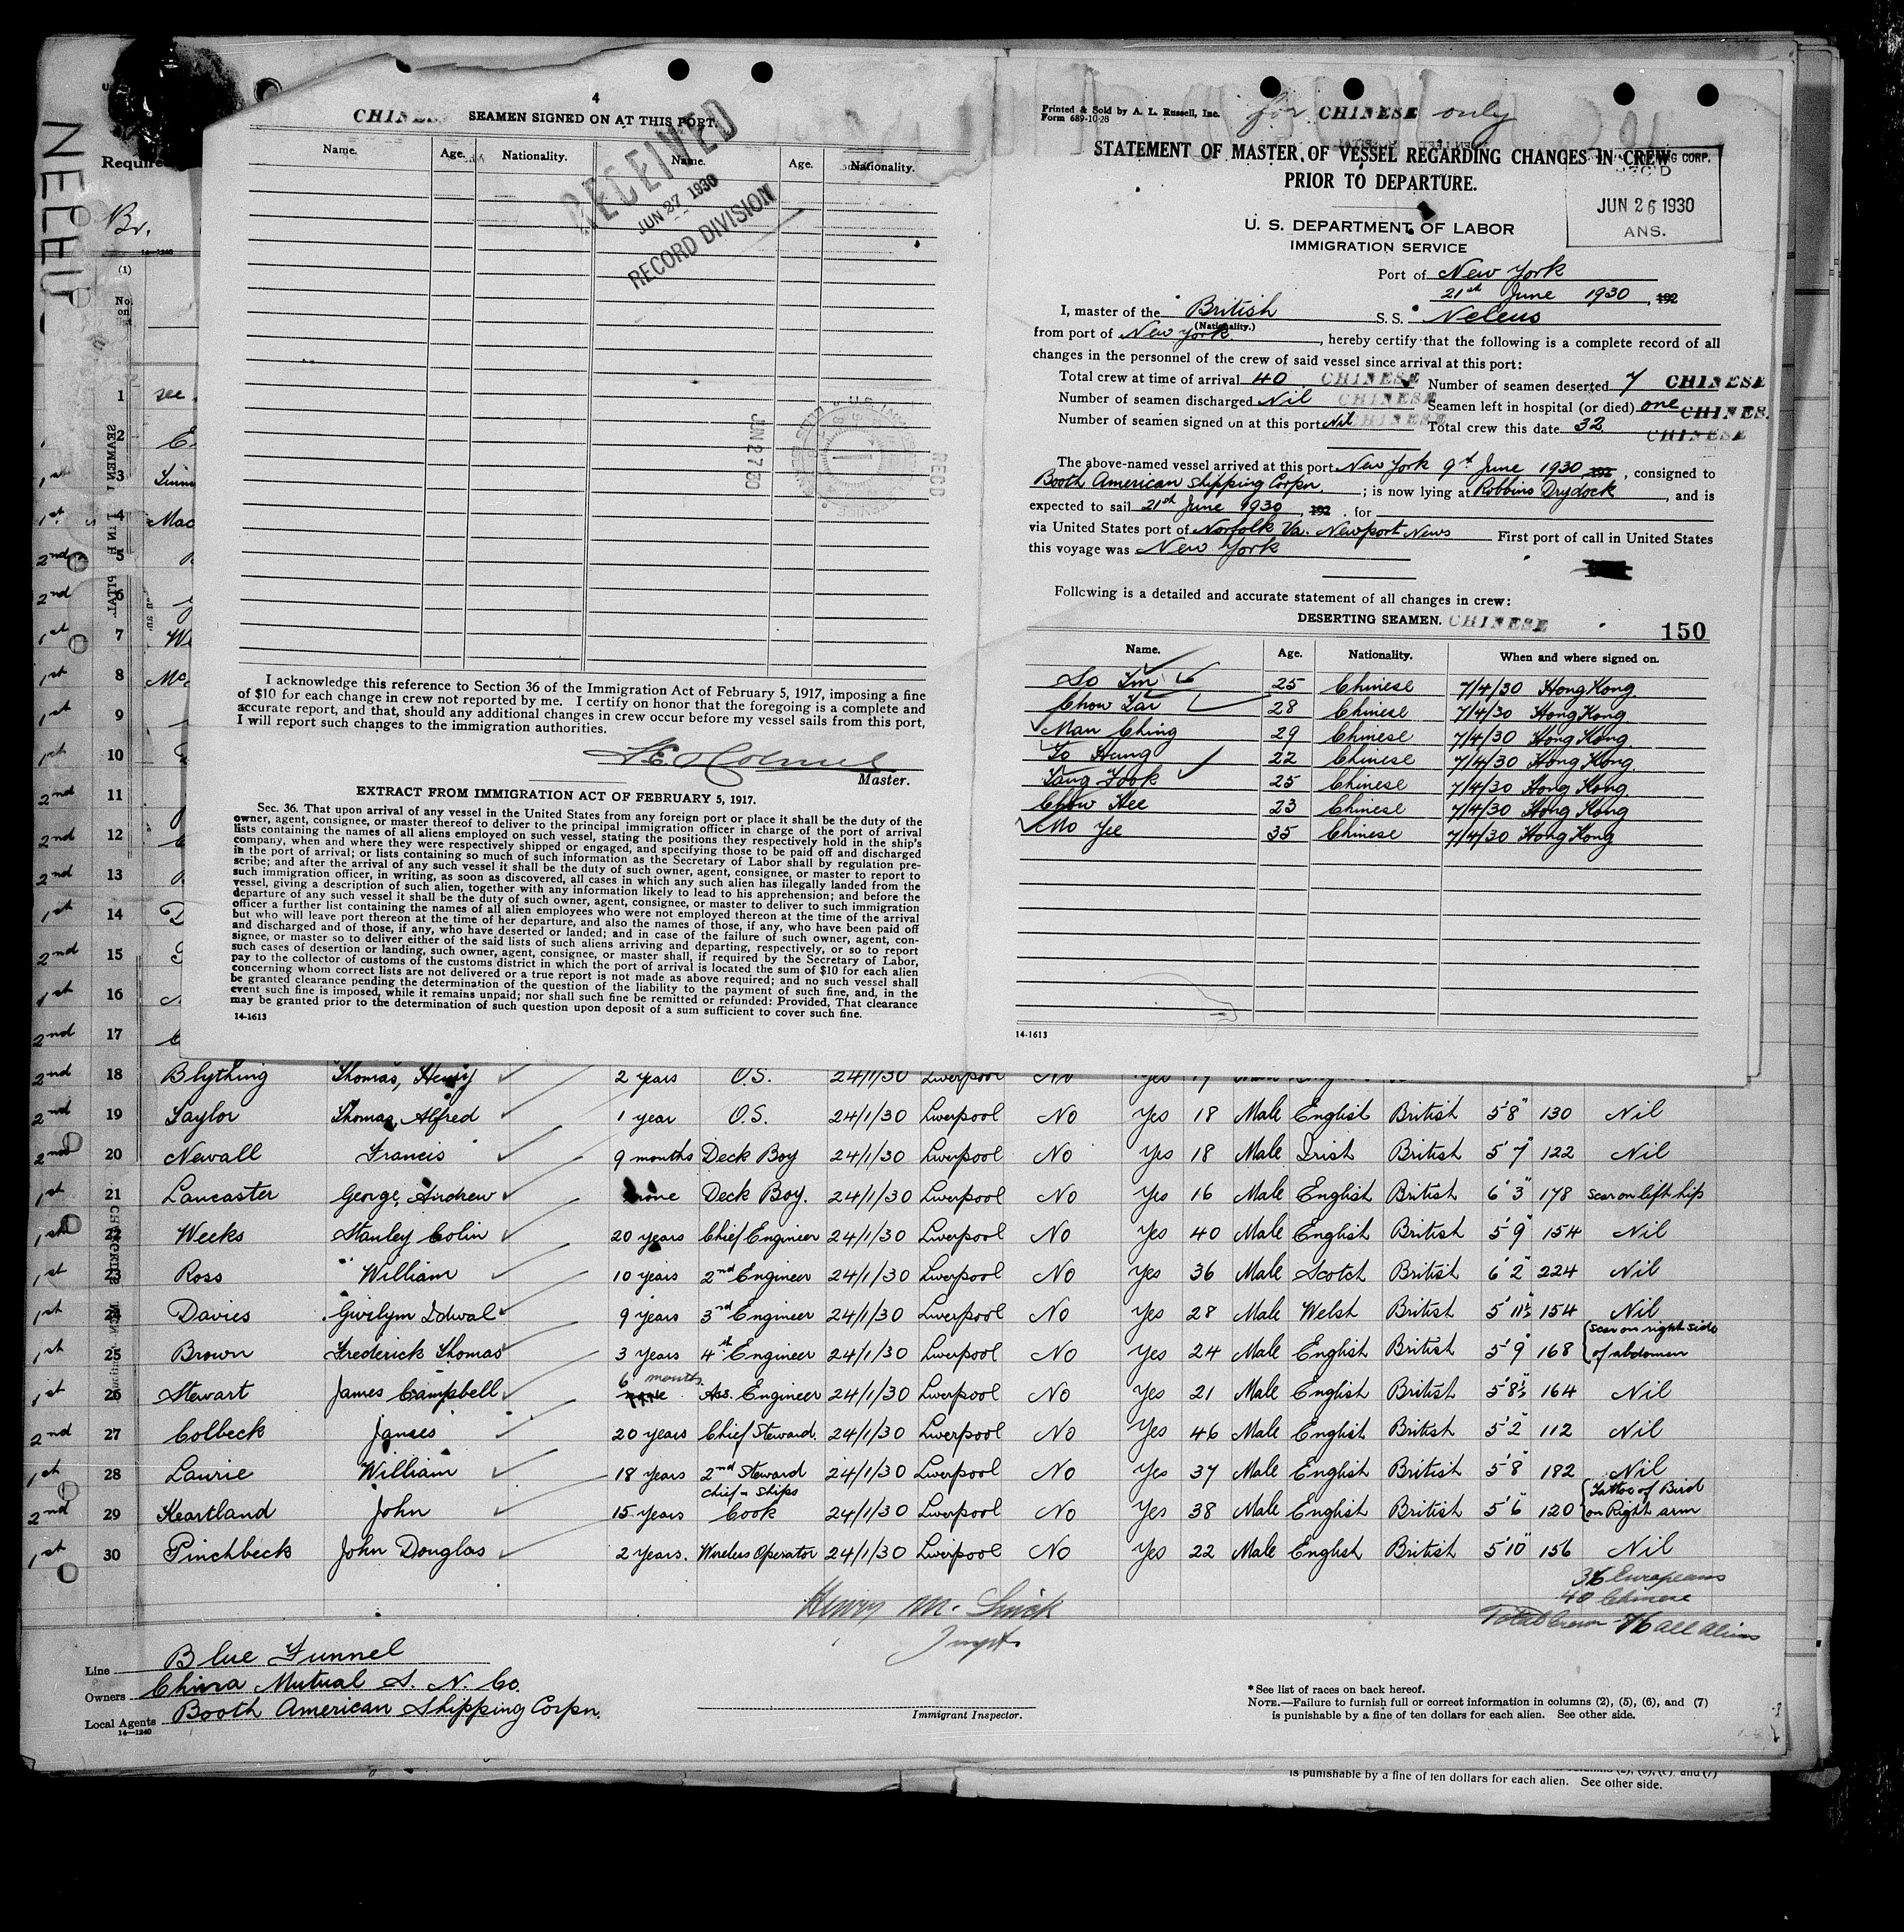 NELEUS
Required
Br.
14-1240
(1)
No. on list
4
CHINESE SEAMEN SIGNED ON AT THIS PORT.
Name. Age. Nationality. Name. Age. Nationality.
RECEIVED
JUN 27 1930
RECORD DIVISION
JUN 27 30
RECD
I acknowledge this reference to Section 36 of the Immigration Act of February 5, 1917, imposing a fine
of $10 for each change in crew not reported by me. I certify on honor that the foregoing is a complete and
accurate report, and that, should any additional changes in crew occur before my vessel sails from this port,
I will report such changes to the immigration authorities.
Master.
EXTRACT FROM IMMIGRATION ACT OF FEBRUARY 5, 1917.
Sec. 36. That upon arrival of any vessel in the United States from any foreign port or place it shall be the duty of the
owner, agent, consignee, or master thereof to deliver to the principal immigration officer in charge of the port of arrival
lists containing the names of all aliens employed on such vessel, stating the positions they respectively hold in the ship's
company, when and where they were respectively shipped or engaged, and specifying those to be paid off and discharged
in the port of arrival; or lists containing so much of such information as the Secretary of Labor shall by regulation pre-
scribe; and after the arrival of any such vessel it shall be the duty of such owner, agent, consignee, or master to report to
such immigration officer, in writing, as soon as discovered, all cases in which any such alien has illegally landed from the
vessel, giving a description of such alien, together with any information likely to lead to his apprehension; and before the
departure of any such vessel it shall be the duty of such owner, agent, consignee, or master to deliver to such immigration
officer a further list containing the names of all alien employees who were not employed thereon at the time of the arrival
but who will leave port thereon at the time of her departure, and also the names of those, if any, who have been paid off
and discharged and of those, if any, who have deserted or landed; and in case of the failure of such owner, agent, con-
signee, or master so to deliver either of the said lists of such aliens arriving and departing, respectively, or so to report
such cases of desertion or landing, such owner, agent, consignee, or master shall, if required by the Secretary of Labor,
pay to the collector of customs of the customs district in which the port of arrival is located the sum of $10 for each alien
concerning whom correct lists are not delivered or a true report is not made as above required; and no such vessel shall
be granted clearance pending the determination of the question of the liability to the payment of such fine, and, in the
event such fine is imposed, while it remains unpaid; nor shall such fine be remitted or refunded: Provided, That clearance
may be granted prior to the determination of such question upon deposit of a sum sufficient to cover such fine.
14-1613
Printed & Sold by A. L. Russell, Inc.
Form 689-10-28
for CHINESE only
STATEMENT OF MASTER OF VESSEL REGARDING CHANGES IN CREW
PRIOR TO DEPARTURE.
REC'D
JUN 26 1930
ANS.
U. S. DEPARTMENT OF LABOR
IMMIGRATION SERVICE
Port of New York
21st June 1930, 192
I, master of the British S. S. Neleus
(Nationality.)
from port of New York, hereby certify that the following is a complete record of all
changes in the personnel of the crew of said vessel since arrival at this port:
Total crew at time of arrival 40 CHINESE Number of seamen deserted 7 CHINESE
Number of seamen discharged Nil CHINESE Seamen left in hospital (or died) one CHINESE
Number of seamen signed on at this port Nil CHINESE Total crew this date 32 CHINESE
The above-named vessel arrived at this port New York 9th June 1930, 192, consigned to
Booth American Shipping Corpn.; is now lying at Robbins Drydock, and is
expected to sail 21st June 1930, 192. for
via United States port of Norfolk Va. Newport News First port of call in United States
this voyage was New York
Following is a detailed and accurate statement of all changes in crew:
DESERTING SEAMEN. CHINESE 150
Name. Age. Nationality. When and where signed on.
So Im 25 Chinese 7/4/30 Hong Kong.
Chow Tai 28 Chinese 7/4/30 Hong Kong.
Man Ching 29 Chinese 7/4/30 Hong Kong.
To Hung 22 Chinese 7/4/30 Hong Kong.
Tang Fook 25 Chinese 7/4/30 Hong Kong.
Chow Hee 23 Chinese 7/4/30 Hong Kong
Mo Yee 35 Chinese 7/4/30 Hong Kong
14-1613
1 see
2
1st 3
1st 4 Mac
2nd 5
2nd 6
1st 7
1st 8 Mc
1st 9
1st 10
2nd 11
2nd 12
2nd 13
1st 14
2nd 15
1st 16
2nd 17
2nd 18 Blything Thomas, Henry 2 years O.S. 24/1/30 Liverpool No Yes
2nd 19 Taylor Thomas, Alfred 1 year O.S. 24/1/30 Liverpool No Yes 18 Male English British 5'8" 130 Nil
2nd 20 Newall Francis 9 months Deck Boy 24/1/30 Liverpool No Yes 18 Male Irish British 5'7" 122 Nil
1st 21 Lancaster George, Andrew none Deck Boy. 24/1/30 Liverpool No Yes 16 Male English British 6'3" 178 scar on left hip
1st 22 Weeks Stanley Colin 20 years Chief Engineer 24/1/30 Liverpool No Yes 40 Male English British 5'9" 154 Nil
1st 23 Ross William 10 years 2nd Engineer 24/1/30 Liverpool No Yes 36 Male Scotch British 6'2" 224 Nil
1st 24 Davies Gwilym Idwal 9 years 3rd Engineer 24/1/30 Liverpool No Yes 28 Male Welsh British 5'11½ 154 Nil
1st 25 Brown Frederick Thomas 3 years 4th Engineer 24/1/30 Liverpool No Yes 24 Male English British 5'9" 168 scar on right side of abdomen
1st 26 Stewart James Campbell 6 months Ass. Engineer 24/1/30 Liverpool No Yes 21 Male English British 5'8½" 164 Nil
2nd 27 Colbeck James 20 years Chief Steward. 24/1/30 Liverpool No Yes 46 Male English British 5'2" 112 Nil
1st 28 Laurie William 18 years 2nd Steward 24/1/30 Liverpool No Yes 37 Male English British 5'8" 182 Nil
2nd 29 Keartland John 15 years Chief-Ships Cook 24/1/30 Liverpool No Yes 38 Male English British 5'6" 120 Tattoo of Bird on Right arm
1st 30 Pinchbeck John Douglas 2 Years. Wireless Operator 24/1/30 Liverpool No Yes 22 Male English British 5'10" 156 Nil
36 Europeans
40 Chinese
Total Crew - 76 all aliens
Line Blue Funnel
Owners China Mutual S. N. Co.
Local Agents Booth American Shipping Corpn.
14-1240
Immigrant Inspector.
* See list of races on back hereof.
NOTE.—Failure to furnish full or correct information in columns (2), (5), (6), and (7)
is punishable by a fine of ten dollars for each alien. See other side.
is punishable by a fine of ten dollars for each alien. See other side.